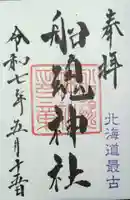 奉拝
北海道最古
船魂神社
令和七年五月十五日